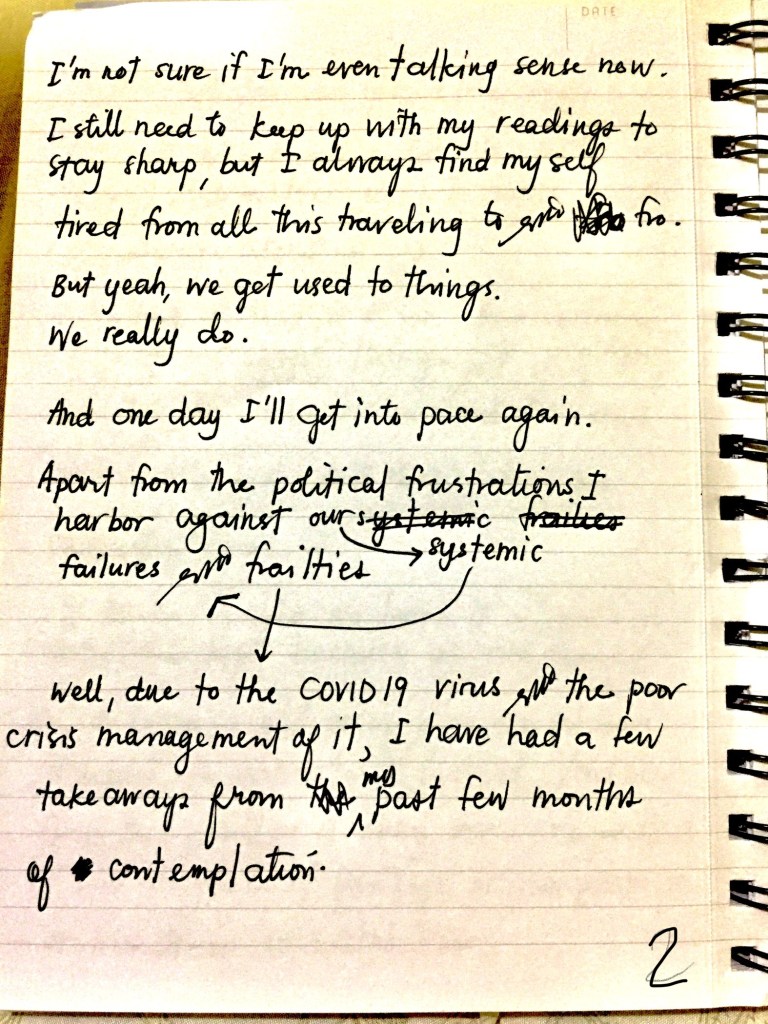 DATE
I'm not sure if I'm even talking sense now.
I still need to keep up with my readings to
stay sharp, but I always find myself
tired from all this traveling to and fro.
But yeah, we get used to things.
We really do.
And one day I'll get into pace again.
Apart from the political frustrations I
harbor against our systemic frailies
systemic
failures and frailties
Well, due to the COVID19 virus and the poor
crisis management of it, I have had a few
takeaways from my past few months
of contemplation.
2